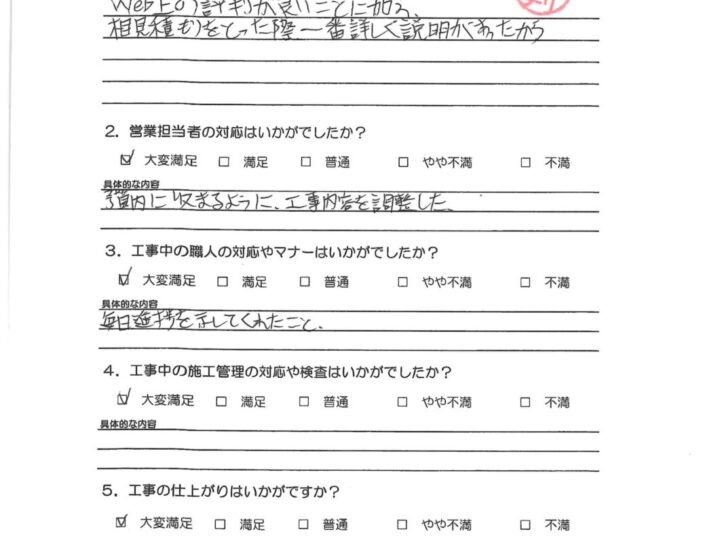 Web上の評判が良いことに加え、
相見積もりをとった際一番詳しく説明があったから
2. 営業担当者の対応はいかがでしたか?
☑ 大変満足 □ 満足 □ 普通 □ やや不満 □ 不満
具体的な内容
予算内に収まるように、工事内容を調整した、
3. 工事中の職人の対応やマナーはいかがでしたか?
☑ 大変満足 □ 満足 □ 普通 □ やや不満 □ 不満
具体的な内容
毎日進捗を示してくれたこと、
4. 工事中の施工管理の対応や検査はいかがでしたか?
☑ 大変満足 □ 満足 □ 普通 □ やや不満 □ 不満
具体的な内容
5. 工事の仕上がりはいかがですか?
☑ 大変満足 □ 満足 □ 普通 □ やや不満 □ 不満